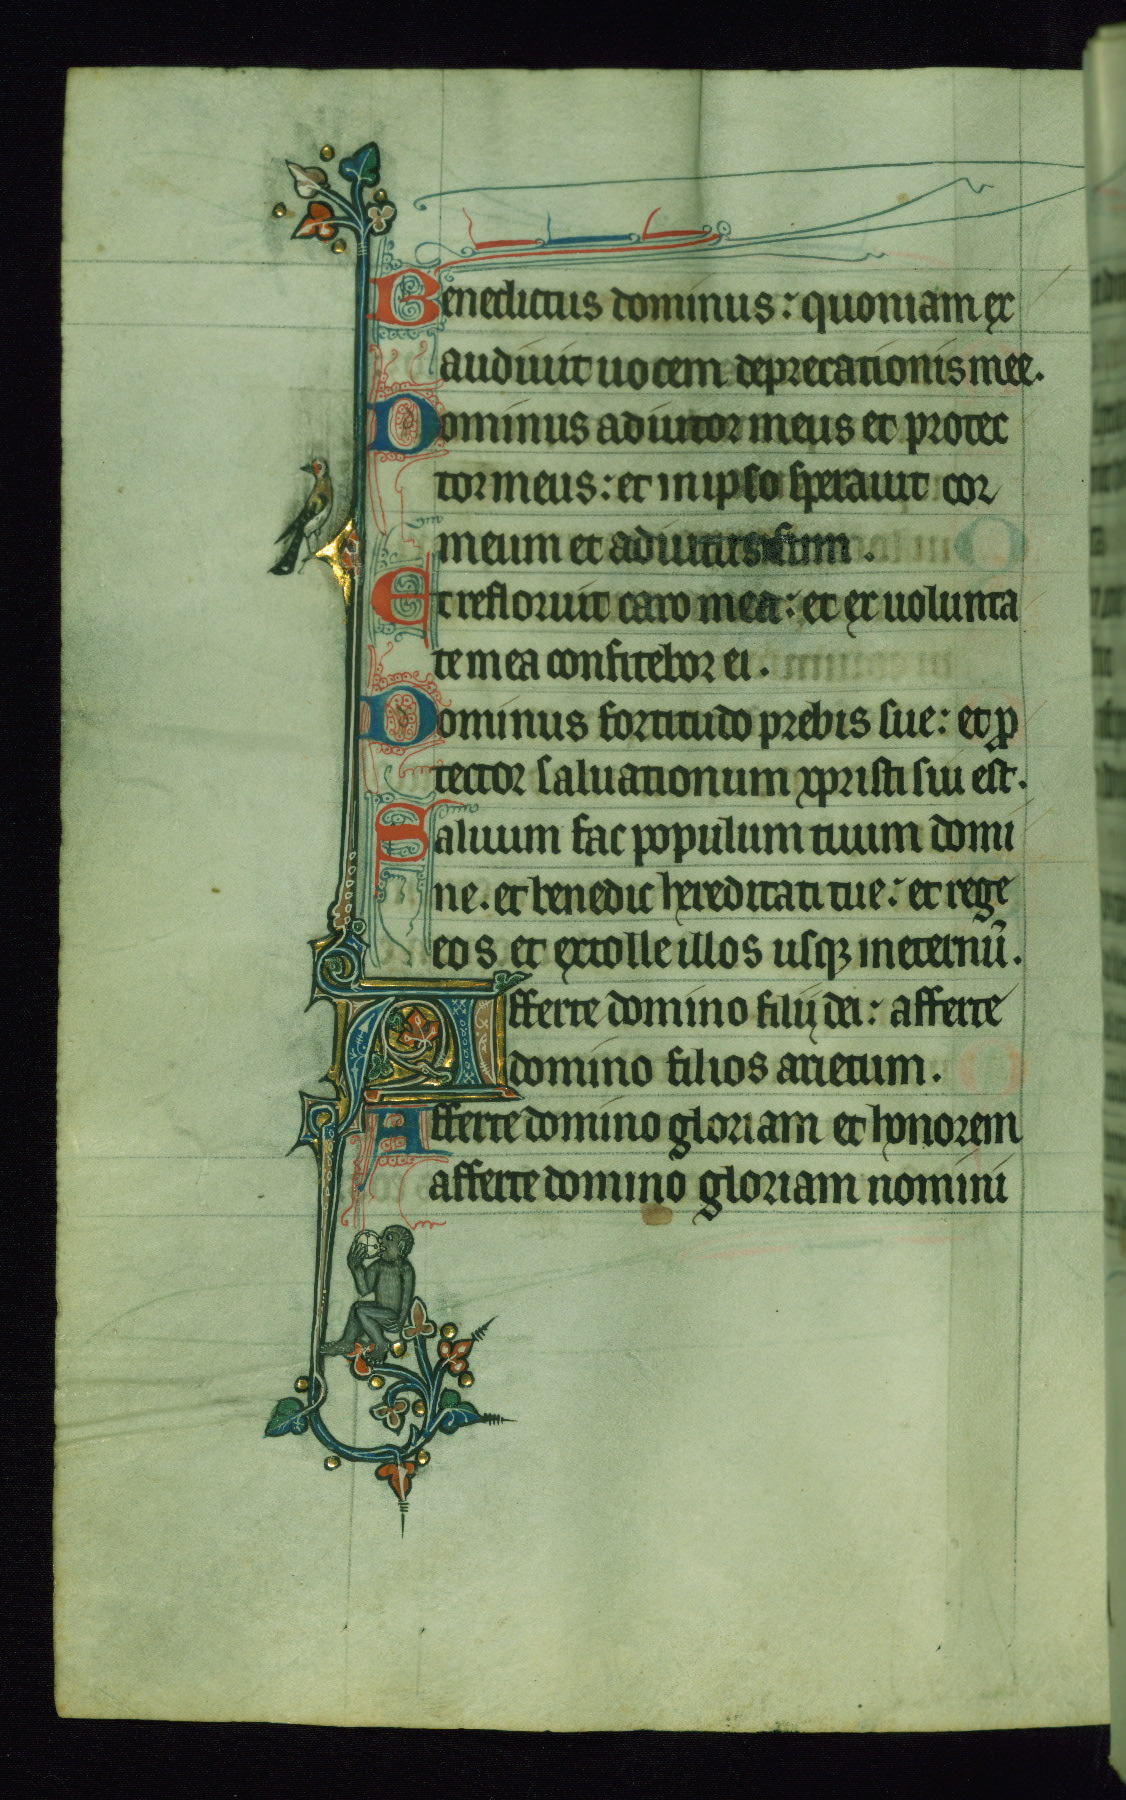 Benedictus dominus: quoniam ex
audiuit uocem deprecationis mee.
Dominus adiutor meus et protec
tor meus: et in ipso sperauit cor
meum et adiutus sum.
Et refloruit caro mea: et ex uolunta
te mea confitebor ei.
Dominus fortitudo plebis sue: et ꝓ
tector saluationum xpristi sui est.
Saluum fac populum tuum domi
ne. et benedic hereditati tue: et rege
eos et extolle illos usqꝫ in eternū.
Afferte domino filij dei: afferte
domino filios arietum.
Afferte domino gloriam et honorem
afferte domino gloriam nomini